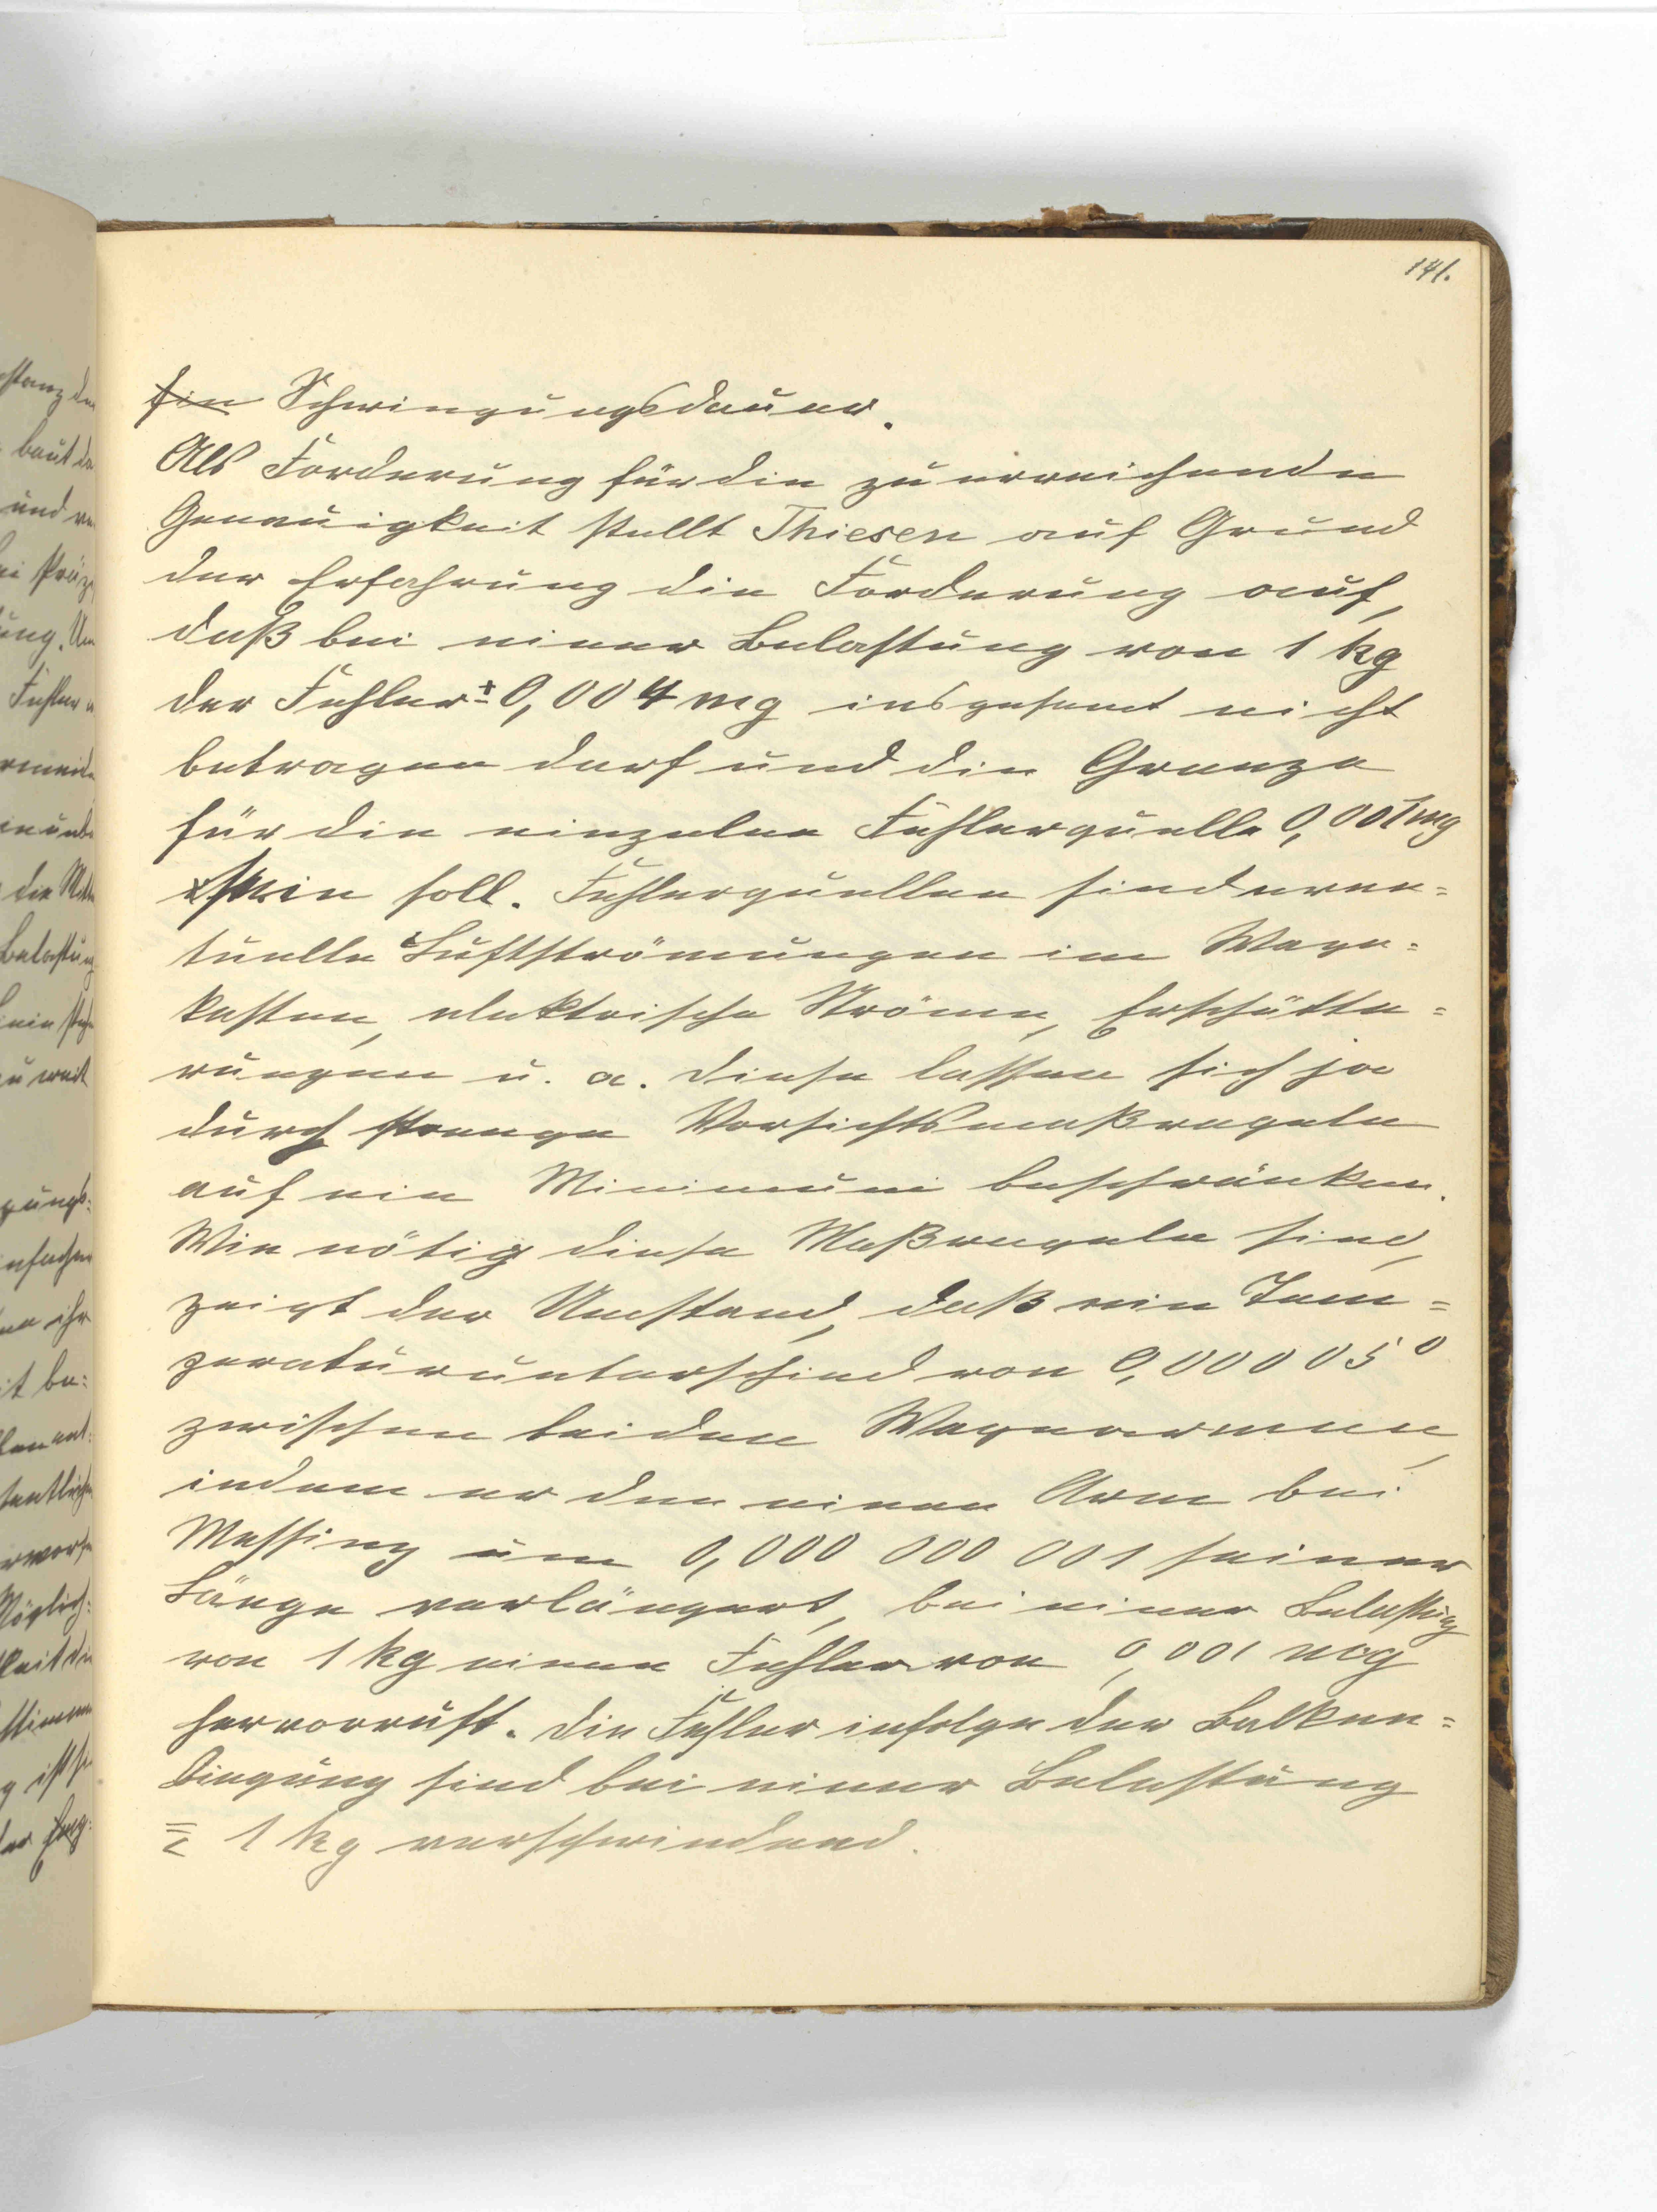 141.
Ein Schwingungsdauer.
Als Forderung für die zu erreichende
Genauigkeit stellt Thiesen auf Grund
der Erfahrung die Forderung auf,
daß bei einer Belastung von 1 kg
der Fehler ± 0,004 mg insgesamt nicht
betragen darf und die Grenze
für die einzelne Fehlerquelle 0,001 mg
sein soll. Fehlerquellen sind even=
tuelle Luftströmungen im Wage=
kasten, elektrische Ströme, Erschütte=
rungen u. a. diese lassen sich ja
durch strenge Vorsichtsmaßregeln
auf ein Minimum beschränken.
Wie nötig diese Maßregeln sind,
zeigt der Umstand, daß ein Tem=
peraturunterschied von 0,00005°
zwischen beiden Wagearmen,
indem er den einen Arm bei
Messing um 0,000 000 001 seiner
Länge verlängert, bei einer Belastung
von 1 kg einen Fehler von 0,001 mg
hervorruft. die Fehler infolge der Balken=
biegung sind bei einer Belastung
1 kg verschwindend.